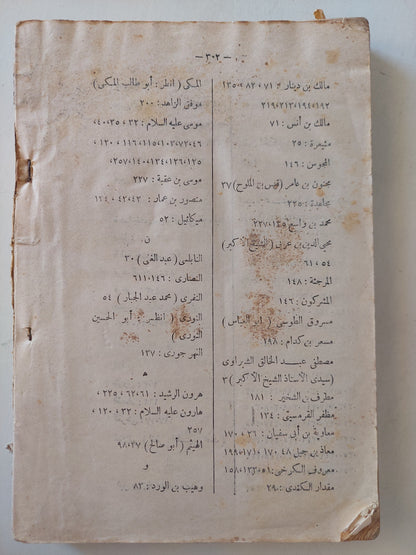 — ٣٠٢ —
مالك بن دينار : ٧١ ، ٨٢ ، ١٣٥ ،
١٩٢ ، ١٩٤ ، ٢١٣ ، ٢١٩
مالك بن أنس : ٧١
المجوس : ١٤٦
مجنون بن عامر (قيس بن الملوح) ٢٧
مجاهد : ٢٢٥
محمد بن واسع
محيي الدين بن عربي (الشيخ الأكبر)
٥٤ ، ٦١
المرجئة : ١٤٨
المشركون : ١٤٦
مسروق الطوسي ( أبو العباس )
مسعر بن كدام : ١٩٨
مصطفى عبد الخالق الشبراوى
(سيدى الأستاذ الشيخ الأكبر) ٣
مطرف بن الشخير : ١٨١
مظفر القرمسينى : ١٣٤
معاوية بن أبي سفيان : ٢٦ ، ١٧٠
معاذ بن جبل
معروف الكرخى
مقدار الكندى : ٢٩٠
المكى ( انظر : أبو طالب المكى )
موفق الزاهد : ٢٠٠
موسى عليه السلام : ٣٢ ، ٣٥ ، ٤٠ ،
٤٦ ، ٧٢ ، ١٠٣ ، ١١٥ ، ١١٦ ، ١٢٠ ،
١٢٥ ، ١٢٦ ، ١٣٤ ، ١٤٠ ، ٢٥٧ ،
موسى بن عقبة : ٢٢٧
منصور بن عمار : ٤٢ ، ٤٣ ،
ميكائيل : ٥٢
ن
النابلسى ( عبد الغنى ) ٣٠
النصارى :
النفرى ( محمد عبد الجبار ) ٥٤
النورى ( انظر : أبو الحسين
النورى )
النهرجورى : ١٣٧
ه
هرون الرشيد : ٦١ ، ٦٢ ، ٢٢٥ ،
هارون عليه السلام : ٣٢ ، ١٢٠ ،
٢٥٧
الهيثم ( أبو صالح ) ٢٧ ، ٩٨
و
وهيب بن الورد : ٨٣